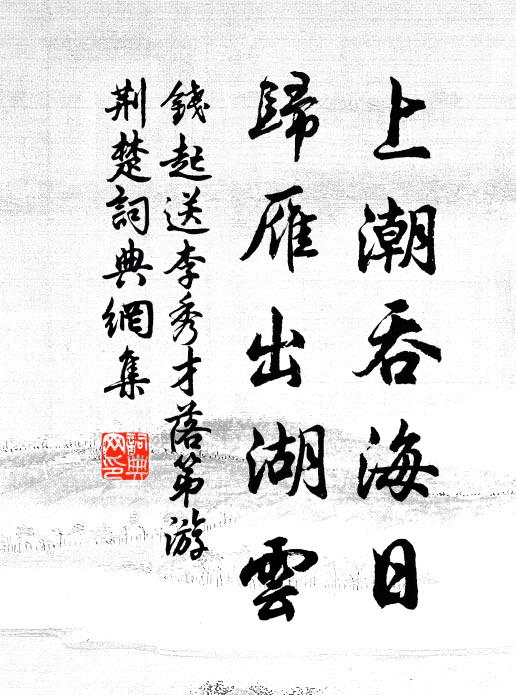 上潮吞海日
歸雁出湖雲
錢起送李秀才落第游
荆楚詞典網集
詞典
网印